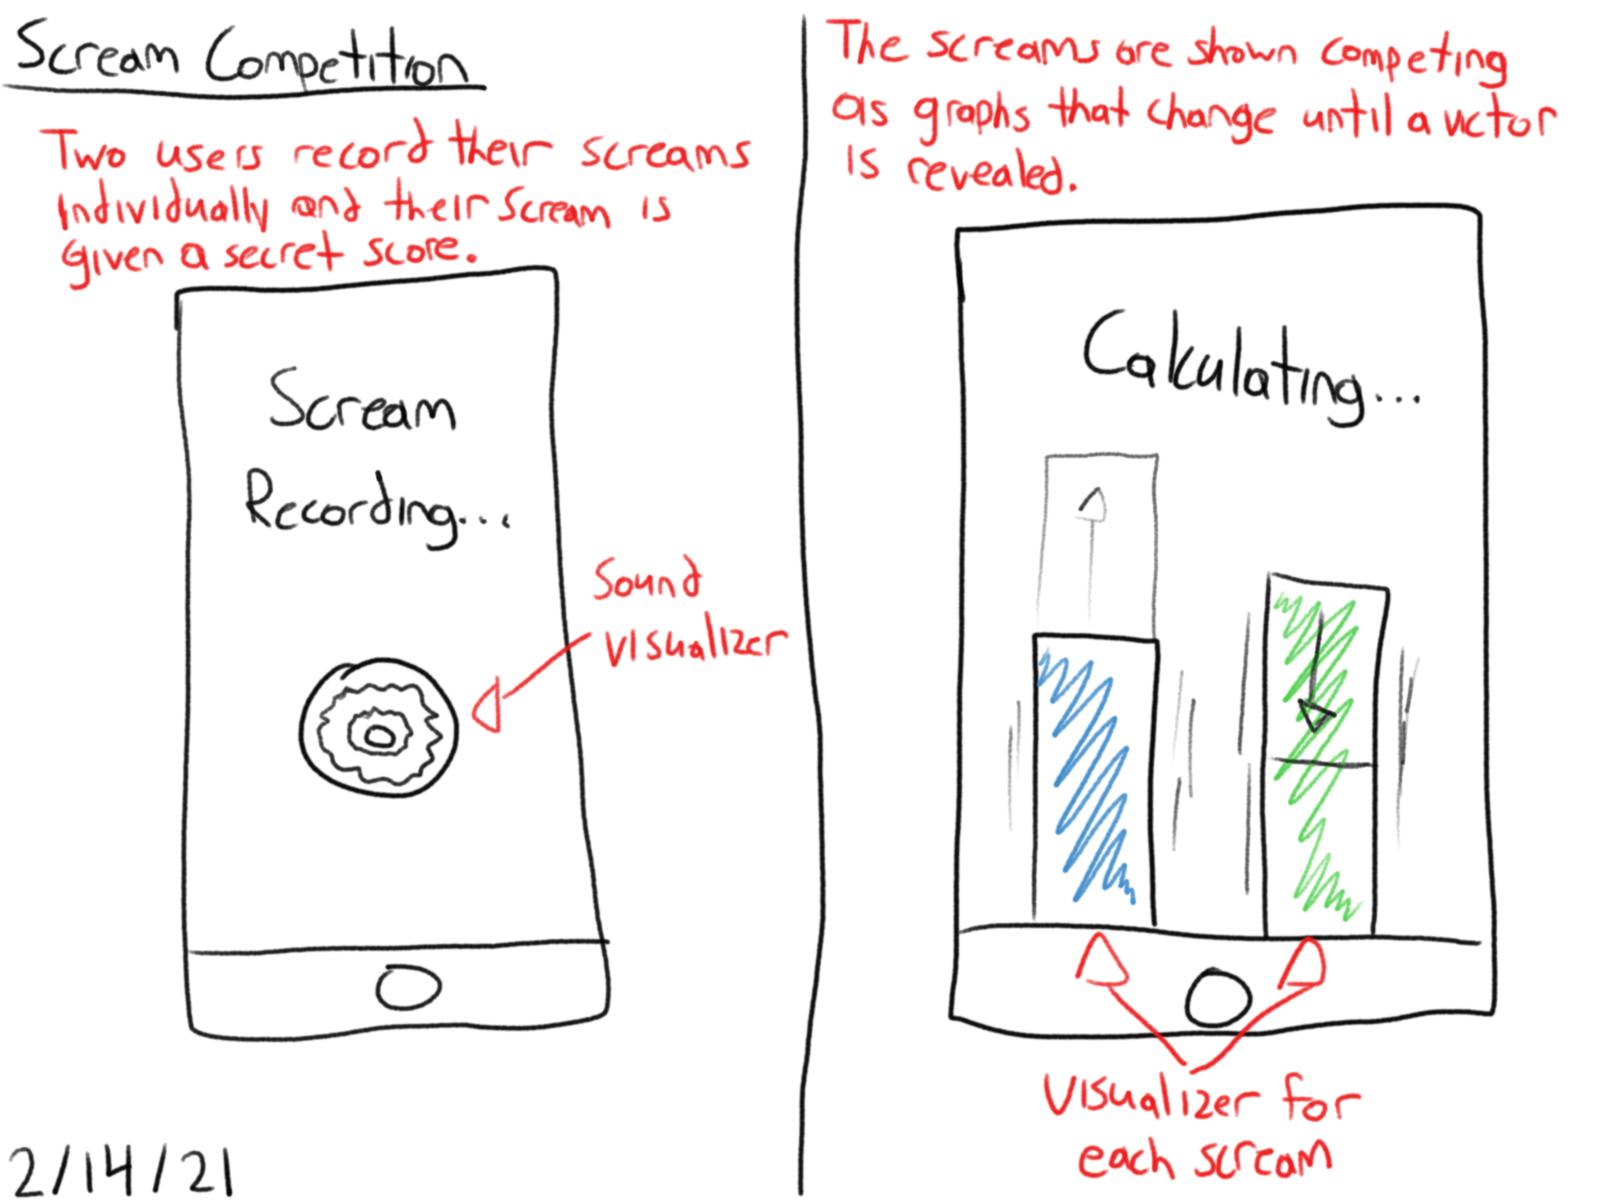 Scream Competition
Two users record their screams
individually and their scream is
given a secret score.
Scream
Recording...
Sound
visualizer
2/14/21
The screams are shown competing
as graphs that change until a victor
is revealed.
Calculating...
Visualizer for
each scream